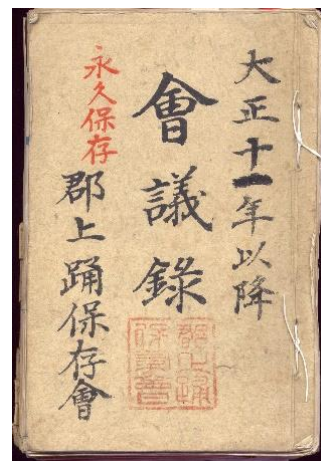 大正十一年以降
會議錄
永久保存
郡上踊保存會
郡上踊
保存會